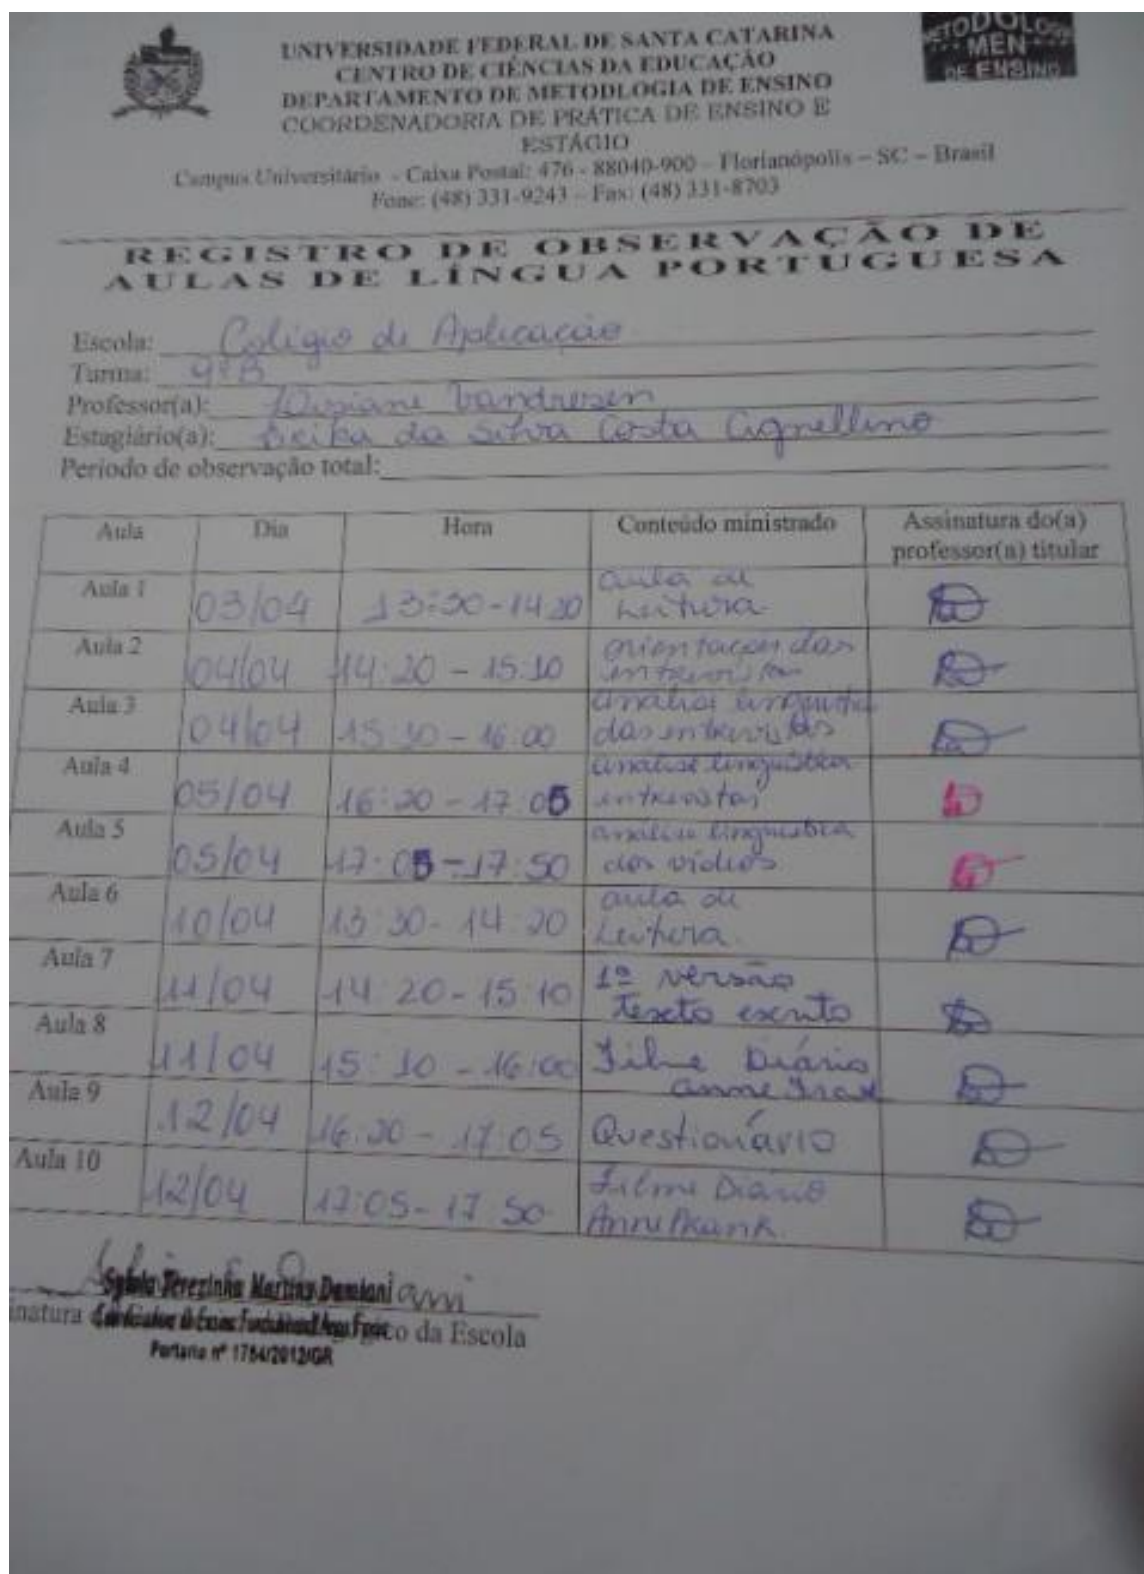 UNIVERSIDADE FEDERAL DE SANTA CATARINA
CENTRO DE CIÊNCIAS DA EDUCAÇÃO
DEPARTAMENTO DE METODLOGIA DE ENSINO
COORDENADORIA DE PRÁTICA DE ENSINO E
ESTÁGIO
MEN
DE ENSINO
Campus Universitário - Caixa Postal: 476 - 88040-900 – Florianópolis – SC – Brasil
Fone: (48) 331-9243 – Fax: (48) 331-8703
REGISTRO DE OBSERVAÇÃO DE
AULAS DE LÍNGUA PORTUGUESA
Escola: Colégio de Aplicação
Turma: 9ºB
Professor(a): Vandresen
Estagiário(a): da Silva Costa
Período de observação total:
Aula Dia Hora Conteúdo ministrado Assinatura do(a)
professor(a) titular
Aula 1 03/04 13:30-14 20 aula de
Leitura
Aula 2 04/04 14:20 – 15:10 das
entrevistas
Aula 3 04/04 15:10 – 16:00 análise
das entrevistas
Aula 4 05/04 16:20 – 17:05 análise linguística
entrevistas
Aula 5 05/04 17:05 – 17:50 análise linguística
dos vídeos
Aula 6 10/04 13:30 - 14:20 aula de
Leitura.
Aula 7 11/04 14:20 - 15:10 1ª versão
texto escrito
Aula 8 11/04 15:10 - 16:00 Filme Diário
Anne
Aula 9 12/04 16:20 – 17:05 Questionário
Aula 10 12/04 17:05 - 17:50 Filme Diário
Anne
Terezinha Martins Damiani
inatura co da Escola
Portaria nº 1764/2012/GR